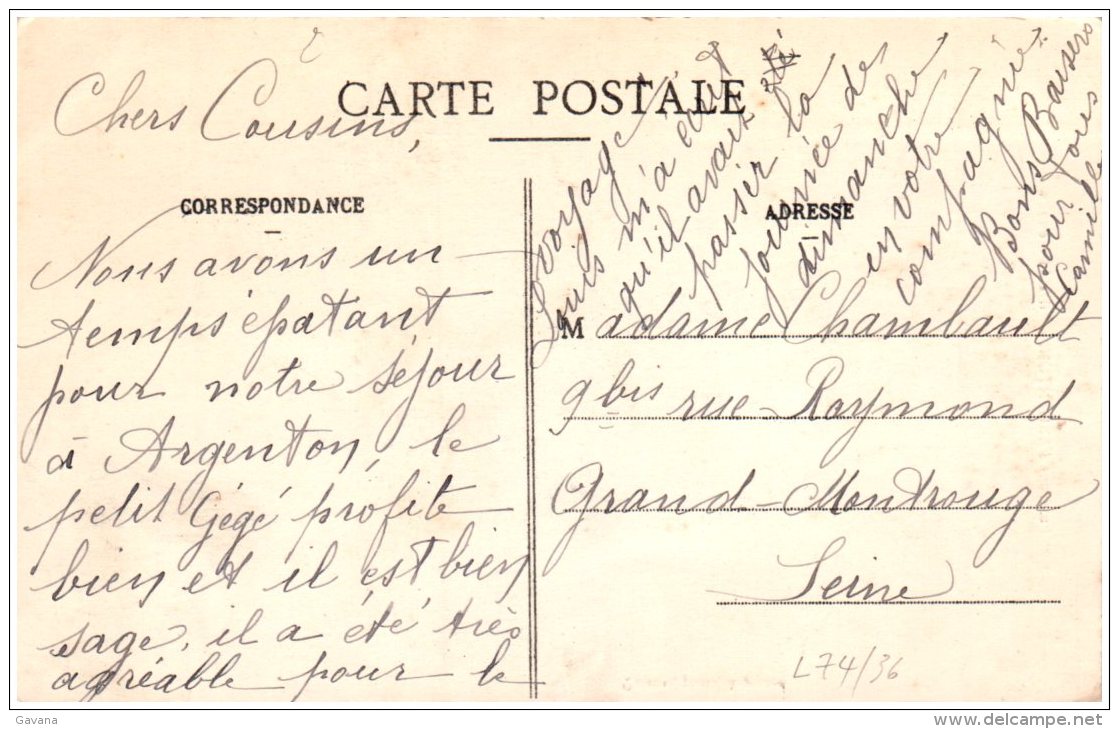 CARTE POSTALE
CORRESPONDANCE
ADRESSE
Chers Cousins,
Nous avons un
temps épatant
pour notre séjour
à Argenton, le
petit Gégé profite
bien et il est bien
sage, il a été très
agréable pour le
voyage.
Louis m'a écrit
qu'il avait été
passer la
journée de
dimanche
en votre
compagnie.
Bons Baisers
pour tous
Camille
Madame Chambault
9 bis rue Raymond
Grand-Montrouge
Seine
L74/36
Gavana
www.delcampe.net